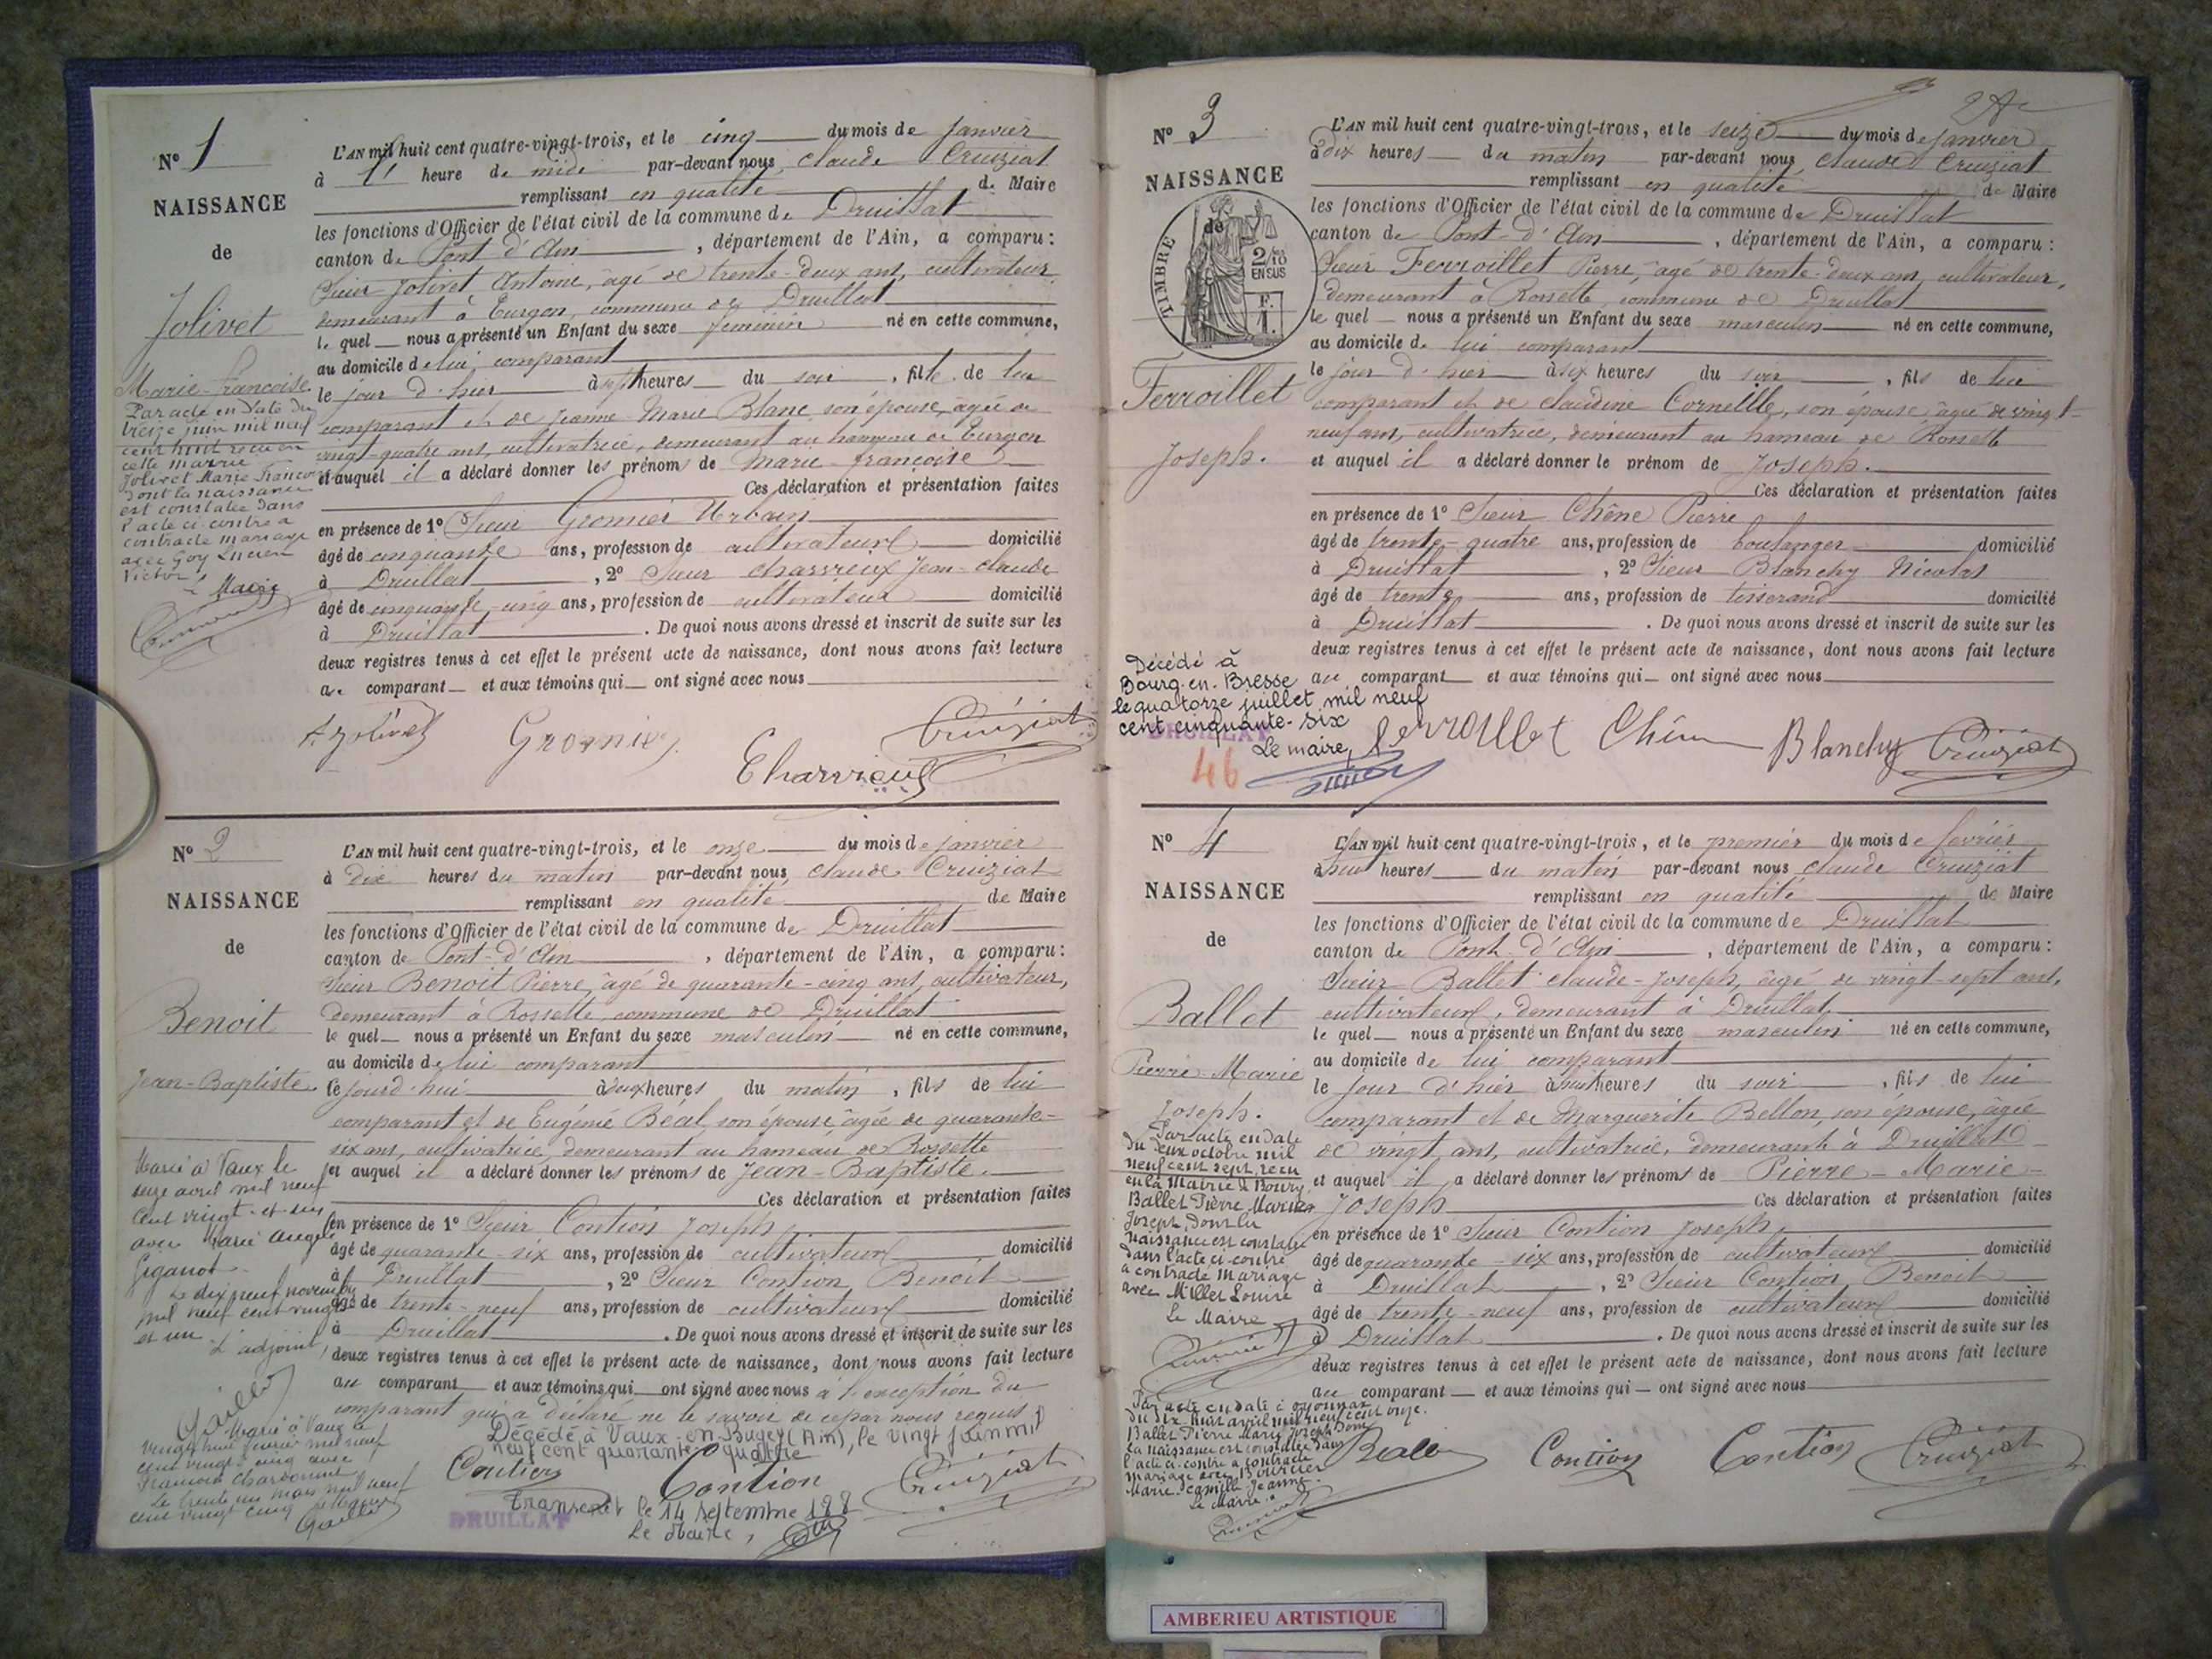 N° 1
NAISSANCE
de
Jolivet
Marie-françoise
Par acte en date du
treize juin mil neuf
cent huit reçu en
cette mairie
Jolivet Marie Francoise
dont la naissance
est constatée dans
l'acte ci-contre a
contracté mariage
avec Goy Lucien
Victor
Le Maire
L'AN mil huit cent quatre-vingt-trois, et le cinq du mois de Janvier
à 1 heure de midi par-devant nous, Claude Cruiziat
remplissant en qualité de Maire
les fonctions d'Officier de l'état civil de la commune de Druillat
canton de Pont-d'Ain, département de l'Ain, a comparu:
Sieur Jolivet Antoine, âgé de trente-deux ans, cultivateur
demeurant à Turgon, commune de Druillat
le quel nous a présenté un Enfant du sexe féminin né en cette commune,
au domicile de lui comparant
le jour d'hier à sept heures du soir, fille de lui
comparant et de Jeanne-Marie Blanc son épouse, âgée de
vingt-quatre ans, cultivatrice, demeurant au hameau de Turgon
et auquel il a déclaré donner les prénoms de Marie-françoise
Ces déclaration et présentation faites
en présence de 1° Sieur Gromier Urbain
âgé de cinquante ans, profession de cultivateur domicilié
à Druillat, 2° Sieur Charvieux Jean-Claude
âgé de cinquante-cinq ans, profession de cultivateur domicilié
à Druillat. De quoi nous avons dressé et inscrit de suite sur les
deux registres tenus à cet effet le présent acte de naissance, dont nous avons fait lecture
au comparant et aux témoins qui ont signé avec nous
A. Jolivet Gromier Charvieux Cruiziat
N° 2
NAISSANCE
de
Benoit
Jean-Baptiste
Marié à Vaux le
seize avril mil neuf
cent vingt-et un
avec Marie Angèle
Le dix neuf novembre
mil neuf cent vingt
et un
L'adjoint,
Marié à Vaux le
vingt huit février mil neuf
cent vingt-cinq avec
Le trente un mars mil neuf
cent vingt cinq
L'AN mil huit cent quatre-vingt-trois, et le onze du mois de janvier
à dix heures du matin par-devant nous, Claude Cruiziat
remplissant en qualité de Maire
les fonctions d'Officier de l'état civil de la commune de Druillat
canton de Pont-d'Ain, département de l'Ain, a comparu:
Sieur Benoit Pierre, âgé de quarante-cinq ans, cultivateur,
demeurant à Rossette, commune de Druillat
le quel nous a présenté un Enfant du sexe masculin né en cette commune,
au domicile de lui comparant
le jourd'hui à deux heures du matin, fils de lui
comparant et de Eugénie Béal, son épouse âgée de quarante-
six ans, cultivatrice, demeurant au hameau de Rossette
et auquel il a déclaré donner les prénoms de Jean-Baptiste.
Ces déclaration et présentation faites
en présence de 1° Sieur Contion Joseph
âgé de quarante-six ans, profession de cultivateur domicilié
à Druillat, 2° Sieur Contion Benoit
âgé de trente-neuf ans, profession de cultivateur domicilié
à Druillat. De quoi nous avons dressé et inscrit de suite sur les
deux registres tenus à cet effet le présent acte de naissance, dont nous avons fait lecture
au comparant et aux témoins qui ont signé avec nous à l'exception du
comparant qui a déclaré ne le savoir de ce par nous requis
Décédé à Vaux-en-Bugey (Ain), le vingt juin mil
neuf cent quarante quatre
Contion Contion Cruiziat
Transcrit le 14 septembre
DRUILLAT
Le Maire,
N° 3
NAISSANCE
de
TIMBRE
2/10
EN SUS
F.
1.
Ferroillet
Joseph.
Décédé à
Bourg-en-Bresse
le quatorze juillet mil neuf
cent cinquante-six
DRUILLAT
Le maire,
46
L'AN mil huit cent quatre-vingt-trois, et le seize du mois de janvier
à dix heures du matin par-devant nous Claude Cruiziat
remplissant en qualité de Maire
les fonctions d'Officier de l'état civil de la commune de Druillat
canton de Pont-d'Ain, département de l'Ain, a comparu:
Sieur Ferroillet Pierre, âgé de trente-deux ans, cultivateur,
demeurant à Rossette, commune de Druillat
le quel nous a présenté un Enfant du sexe masculin né en cette commune,
au domicile de lui comparant
le jour d'hier à six heures du soir, fils de lui
comparant et de Claudine Corneille, son épouse âgée de vingt-
neuf ans, cultivatrice, demeurant au hameau de Rossette
et auquel il a déclaré donner le prénom de Joseph.
Ces déclaration et présentation faites
en présence de 1° Sieur Chêne Pierre
âgé de trente-quatre ans, profession de boulanger domicilié
à Druillat, 2° Sieur Blanchy Nicolas
âgé de trente ans, profession de tisserand domicilié
à Druillat. De quoi nous avons dressé et inscrit de suite sur les
deux registres tenus à cet effet le présent acte de naissance, dont nous avons fait lecture
au comparant et aux témoins qui ont signé avec nous
Ferroillet Chêne Blanchy Cruiziat
N° 4
NAISSANCE
de
Ballet
Pierre-Marie
Joseph.
Par acte en date
du deux octobre mil
neuf cent sept, reçu
en la Mairie de Bourg
Ballet Pierre Marie
Joseph, dont la
naissance est constatée
dans l'acte ci-contre
a contracté mariage
avec Millet Louise
Le Maire
Par acte en date à Oyonnax
du dix-huit avril mil neuf cent onze.
Ballet Pierre Marie Joseph dont
la naissance est constatée dans
l'acte ci-contre a contracté
mariage avec Bouvier
Marie Camille Jeanne.
Le Maire.
L'AN mil huit cent quatre-vingt-trois, et le premier du mois de février
à huit heures du matin par-devant nous Claude Cruiziat
remplissant en qualité de Maire
les fonctions d'Officier de l'état civil de la commune de Druillat
canton de Pont-d'Ain, département de l'Ain, a comparu:
Sieur Ballet Claude-Joseph, âgé de vingt-sept ans,
cultivateur, demeurant à Druillat
le quel nous a présenté un Enfant du sexe masculin né en cette commune,
au domicile de lui comparant
le jour d'hier à huit heures du soir, fils de lui
comparant et de Marguerite Bellon, son épouse, âgée
de vingt ans, cultivatrice, demeurante à Druillat
et auquel il a déclaré donner les prénoms de Pierre-Marie-
Joseph Ces déclaration et présentation faites
en présence de 1° Sieur Contion Joseph
âgé de quarante-six ans, profession de cultivateur domicilié
à Druillat, 2° Sieur Contion Benoit
âgé de trente-neuf ans, profession de cultivateur domicilié
à Druillat. De quoi nous avons dressé et inscrit de suite sur les
deux registres tenus à cet effet le présent acte de naissance, dont nous avons fait lecture
au comparant et aux témoins qui ont signé avec nous
Contion Contion Cruiziat
AMBERIEU ARTISTIQUE